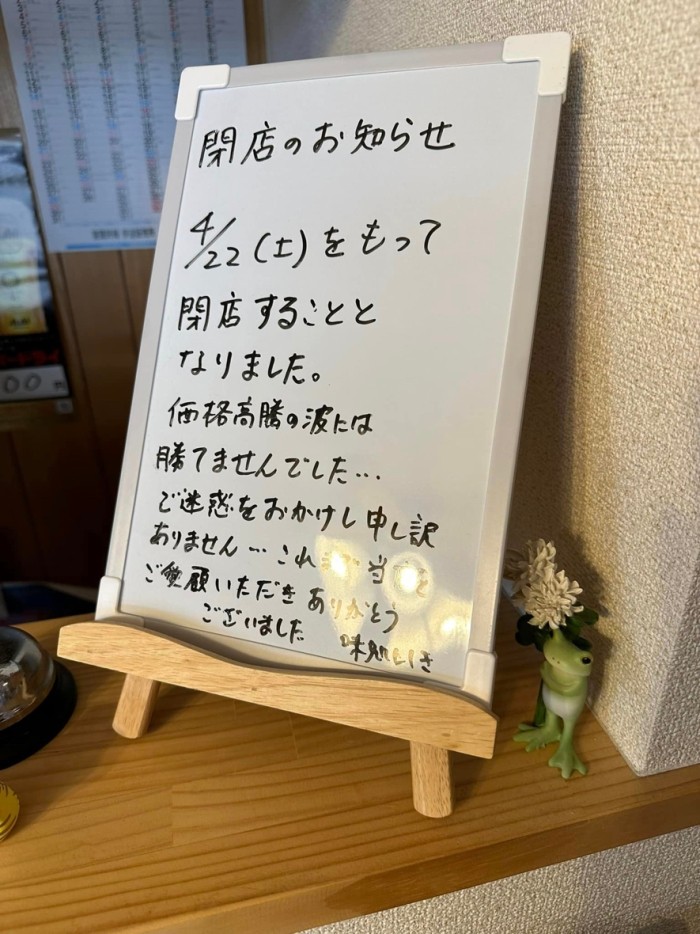 閉店のお知らせ
4/22(土)をもって
閉店することと
なりました。
価格高騰の波には
勝てませんでした…
ご迷惑をおかけし申し訳
ありません…これまで当店を
ご愛顧いただきありがとう
ございました 味処
00